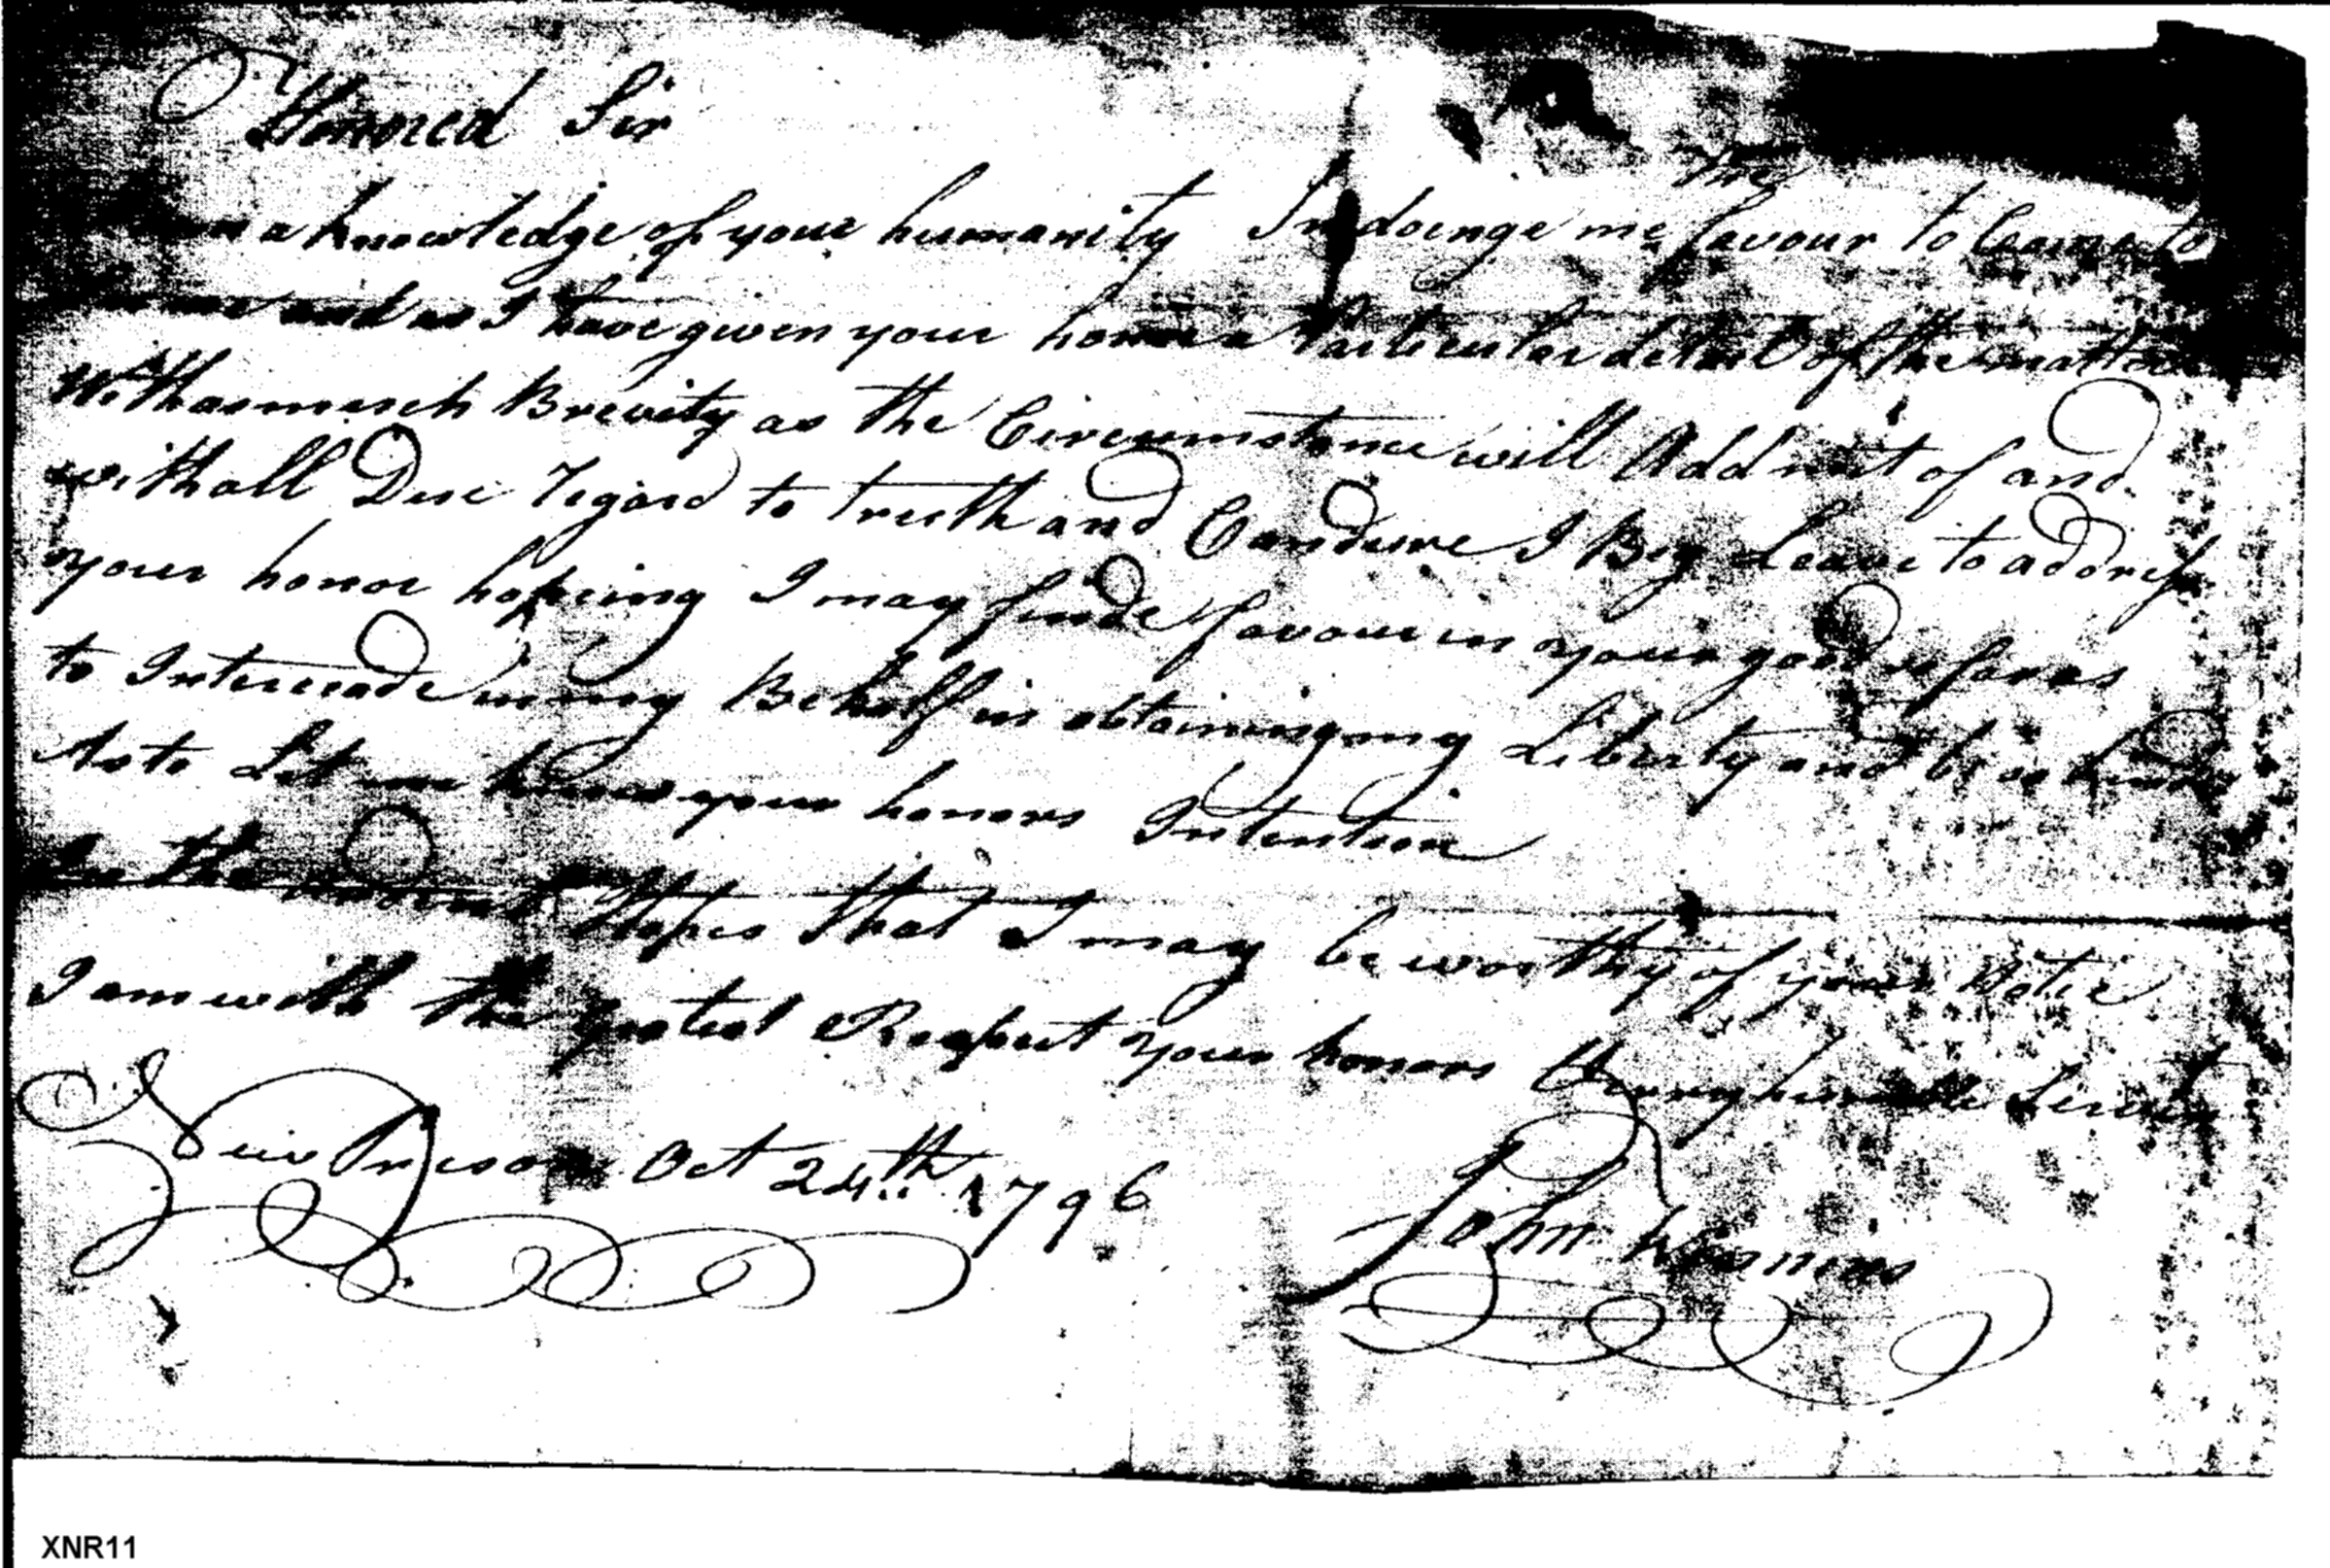 Honored Sir
a knowledge of your humanity In doinge me the favour to Come to
me and as I have given your honor a Particular detail of the matter
With as much Brevity as the Circumstance will Addmit of and
with all Due regard to truth and Candure I Beg Leave to address
your honor hopeing I may finde favour in your good
to Interceade in my Behalf in obtaining my Liberty and be so kind
As to Let me know your honors Intention
In the Hopes that I may be worthy of your Notice
I am with the gratest Respect your honors Verry humble Servt
New Prison Oct 24th 1796
John
XNR11